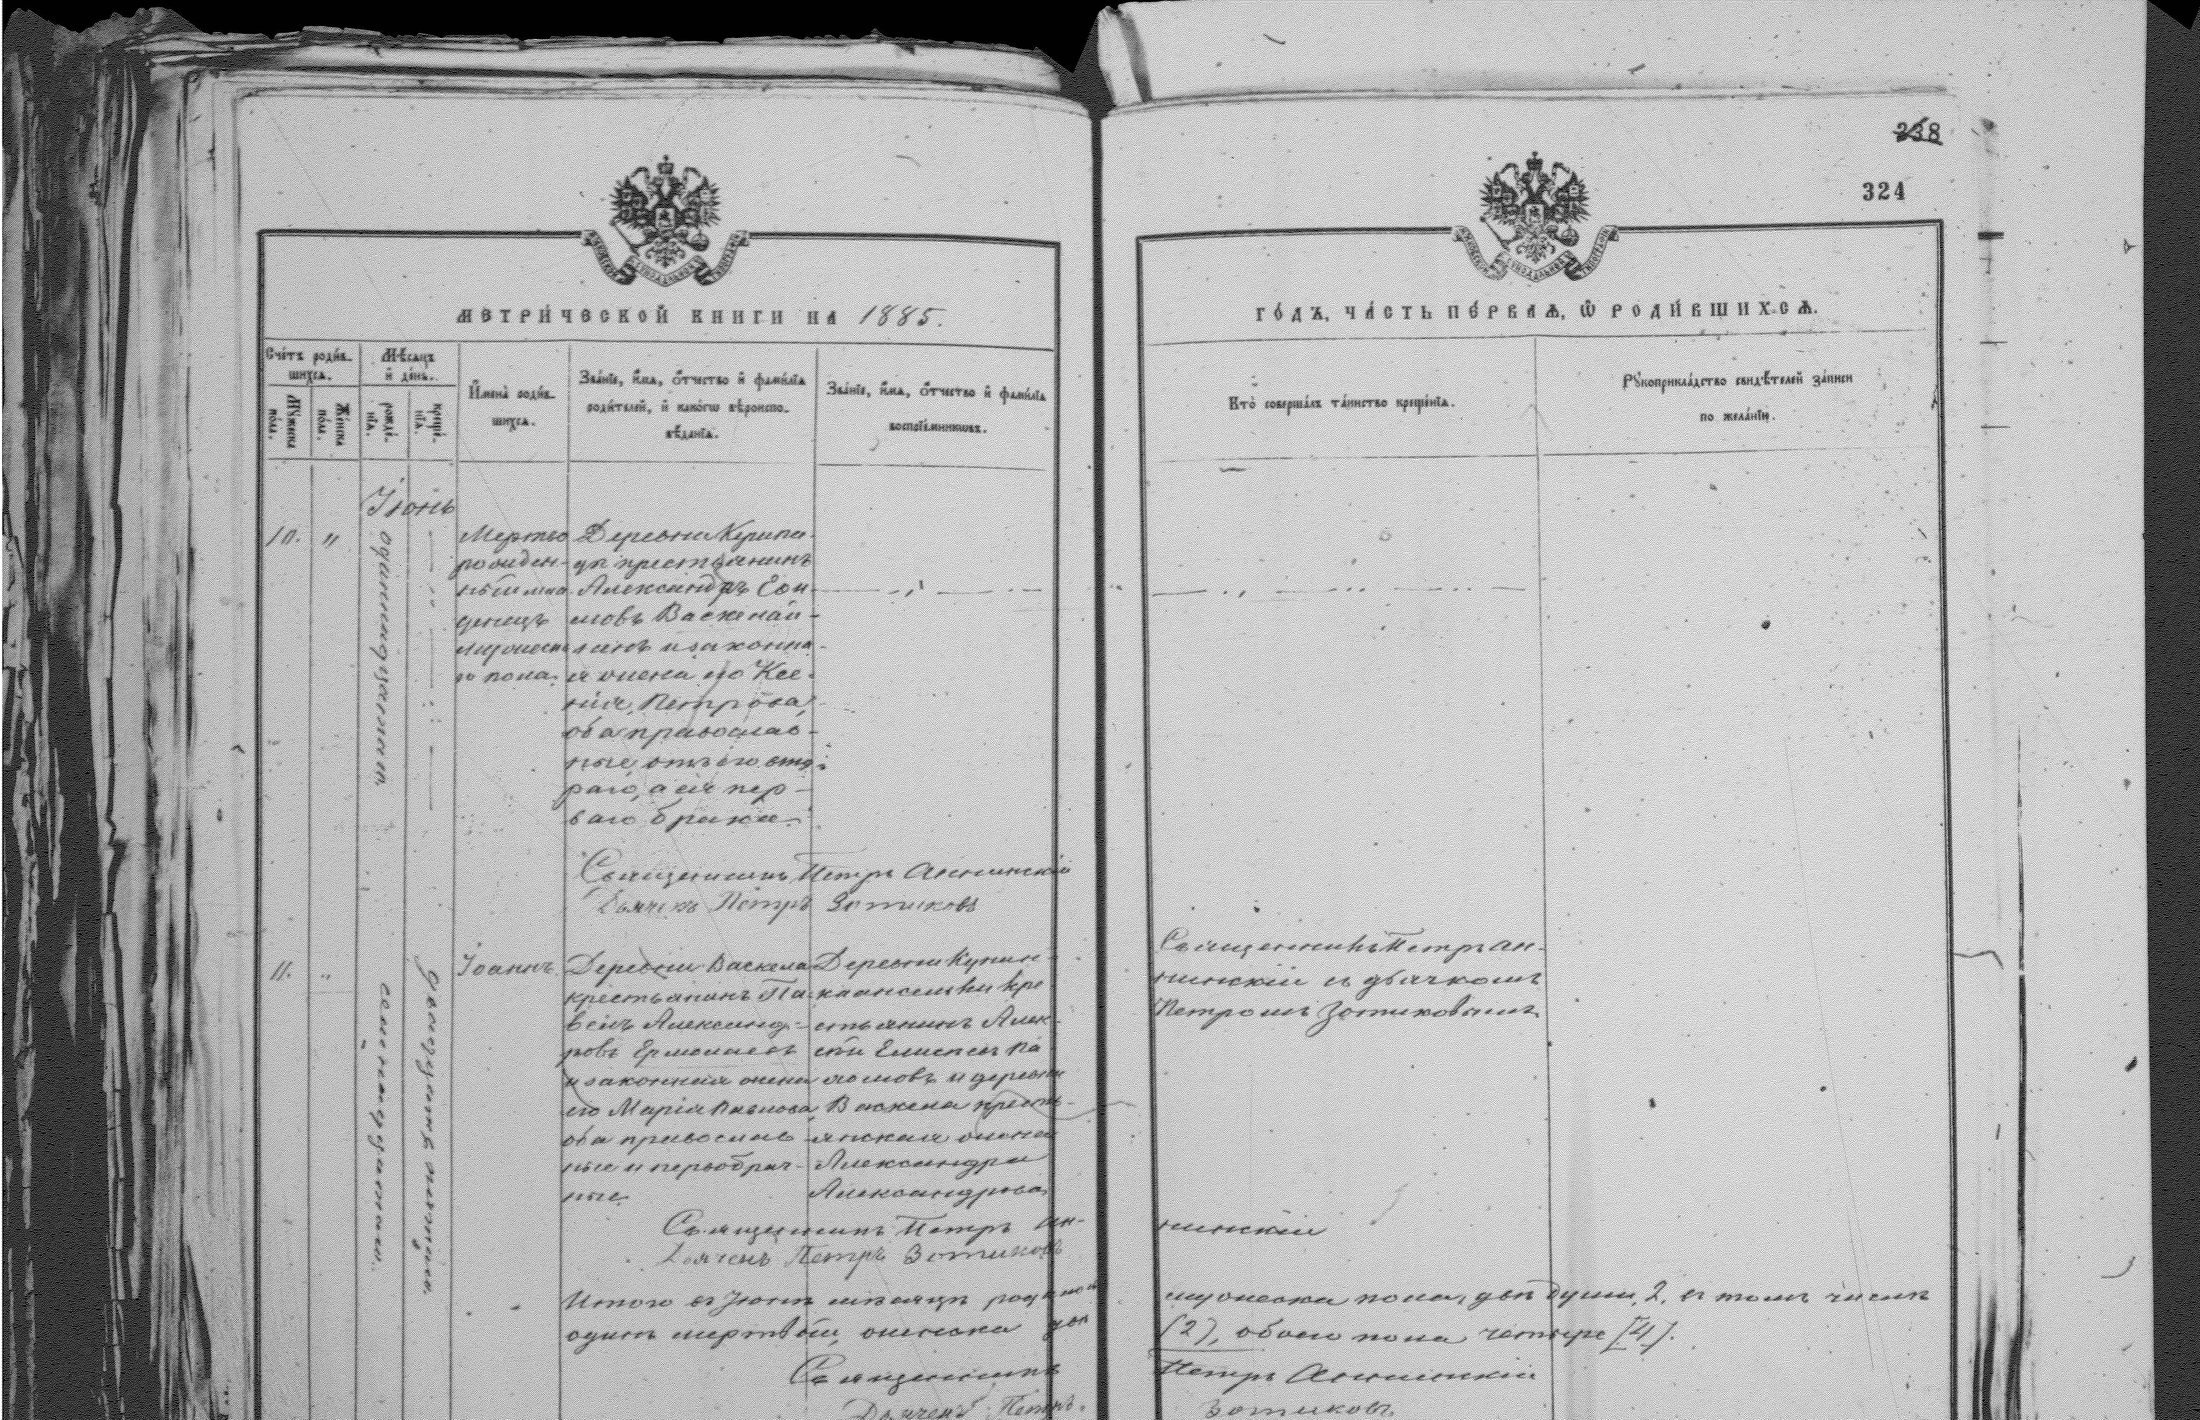 238
324
МЕТРИЧЕСКОЙ КНИГИ НА 1885.
ГОДЪ, ЧАСТЬ ПЕРВАЯ, Ѡ РОДИВШИХСЯ.
Счетъ родив-
шихся.
Мѣсяцъ
и день.
Мужеска
пола.
Женска
пола.
рожде-
нія.
креще-
нія.
Имена родив-
шихся.
Званіе, имя, отчество и фамилія
родителей, и какогѡ вѣроиспо-
вѣданія.
Званіе, имя, отчество и фамилія
воспріемниковъ.
Кто совершалъ таинство крещенія.
Рукоприкладство свидѣтелей записи
по желанію.
Іюнь
10. "
одиннадцатаго
Мертво
рожден-
ный мла
денецъ
мужеск
го пола.
Деревни
цы крестьянинъ
Александръ
и законна-
я жена его Ксе-
нія Петрова,
оба православ-
ные, отъ его вто-
раго, а ея пер-
ваго брака.
Священникъ Петръ Аннинскій
Дьячекъ Петръ Зотиковъ
11. "
семнадцатаго
двадцать
Іоаннъ.
Деревни Васкела
крестьянинъ Па-
велъ Александ-
ровъ Ермолаевъ
и законная жена
его Марія Павлова
оба православ-
ные и первобрач-
ные.
Деревни
кре
стьянинъ Алек-
сѣй
и деревни
Васкела кресть-
янская жена
Александра
Александрова.
Священникъ Петръ Ан-
нинскій съ дьячкомъ
Петромъ Зотиковымъ.
Священникъ Петръ Ан-
нинскій
Дьячекъ Петръ Зотиковъ
Итого въ Іюнѣ мѣсяцѣ родилось мужеска пола двѣ души, 2, въ томъ числѣ
одинъ мертвый, женска двѣ (2), обоего пола четыре [4].
Священникъ Петръ Аннинскій
Дьячекъ Петръ Зотиковъ.